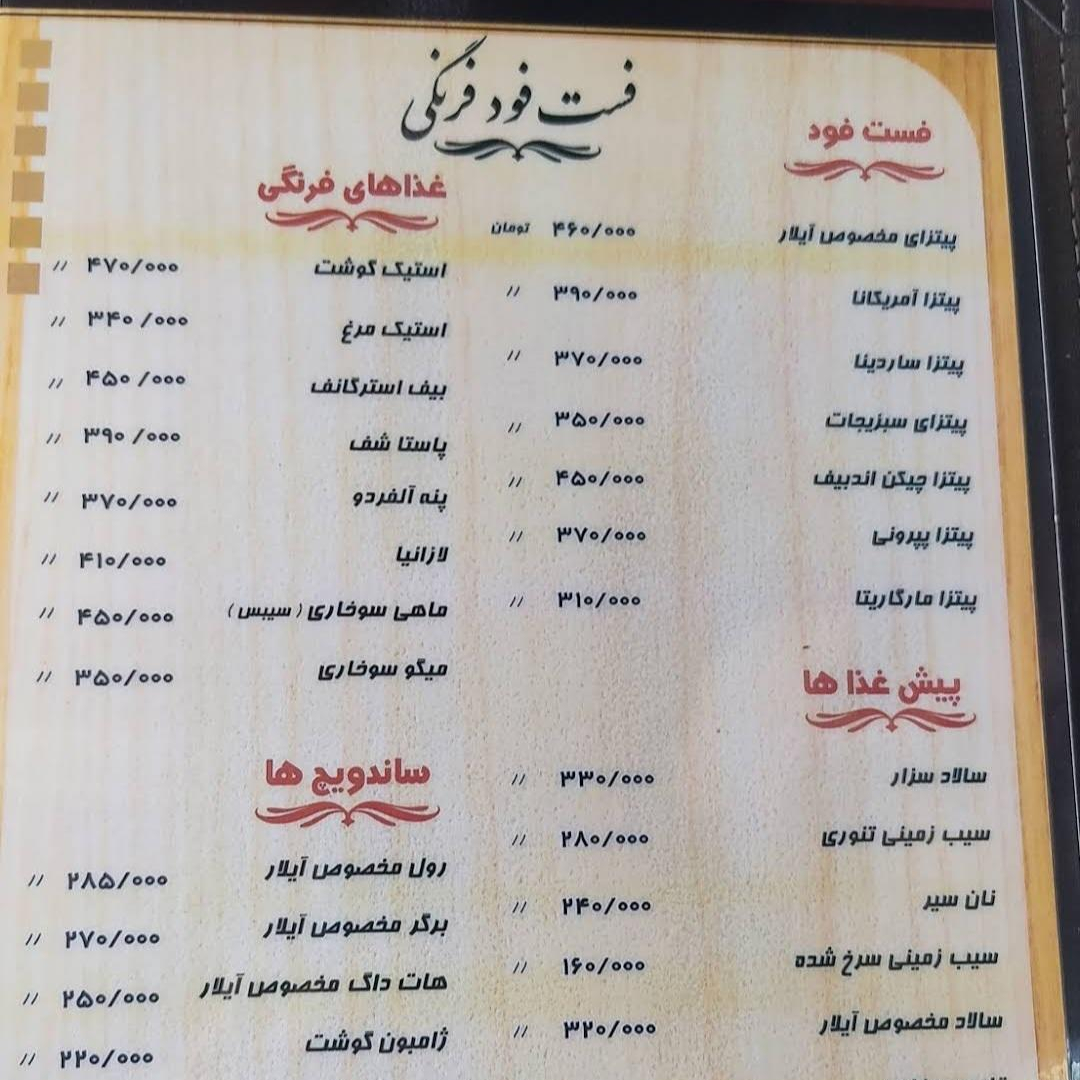 فست فود فرنگی
فست فود
پیتزای مخصوص آیلار ۴۶۰/۰۰۰ تومان
پیتزا آمریکانا ۳۹۰/۰۰۰ //
پیتزا ساردینا ۳۷۰/۰۰۰ //
پیتزای سبزیجات ۳۵۰/۰۰۰ //
پیتزا چیکن اندبیف ۴۵۰/۰۰۰ //
پیتزا پپرونی ۳۷۰/۰۰۰ //
پیتزا مارگاریتا ۳۱۰/۰۰۰ //
پیش غذا ها
سالاد سزار ۳۳۰/۰۰۰ //
سیب زمینی تنوری ۲۸۰/۰۰۰ //
نان سیر ۲۴۰/۰۰۰ //
سیب زمینی سرخ شده ۱۶۰/۰۰۰ //
سالاد مخصوص آیلار ۳۲۰/۰۰۰ //
غذاهای فرنگی
استیک گوشت ۴۷۰/۰۰۰ //
استیک مرغ ۳۴۰/۰۰۰ //
بیف استرگانف ۴۵۰/۰۰۰ //
پاستا شف ۳۹۰/۰۰۰ //
پنه آلفردو ۳۷۰/۰۰۰ //
لازانیا ۴۱۰/۰۰۰ //
ماهی سوخاری (سیبس) ۴۵۰/۰۰۰ //
میگو سوخاری ۳۵۰/۰۰۰ //
ساندویچ ها
رول مخصوص آیلار ۲۸۵/۰۰۰ //
برگر مخصوص آیلار ۲۷۰/۰۰۰ //
هات داگ مخصوص آیلار ۲۵۰/۰۰۰ //
ژامبون گوشت ۲۲۰/۰۰۰ //